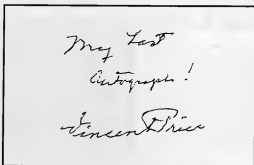 My Last
Autograph!
Vincent Price